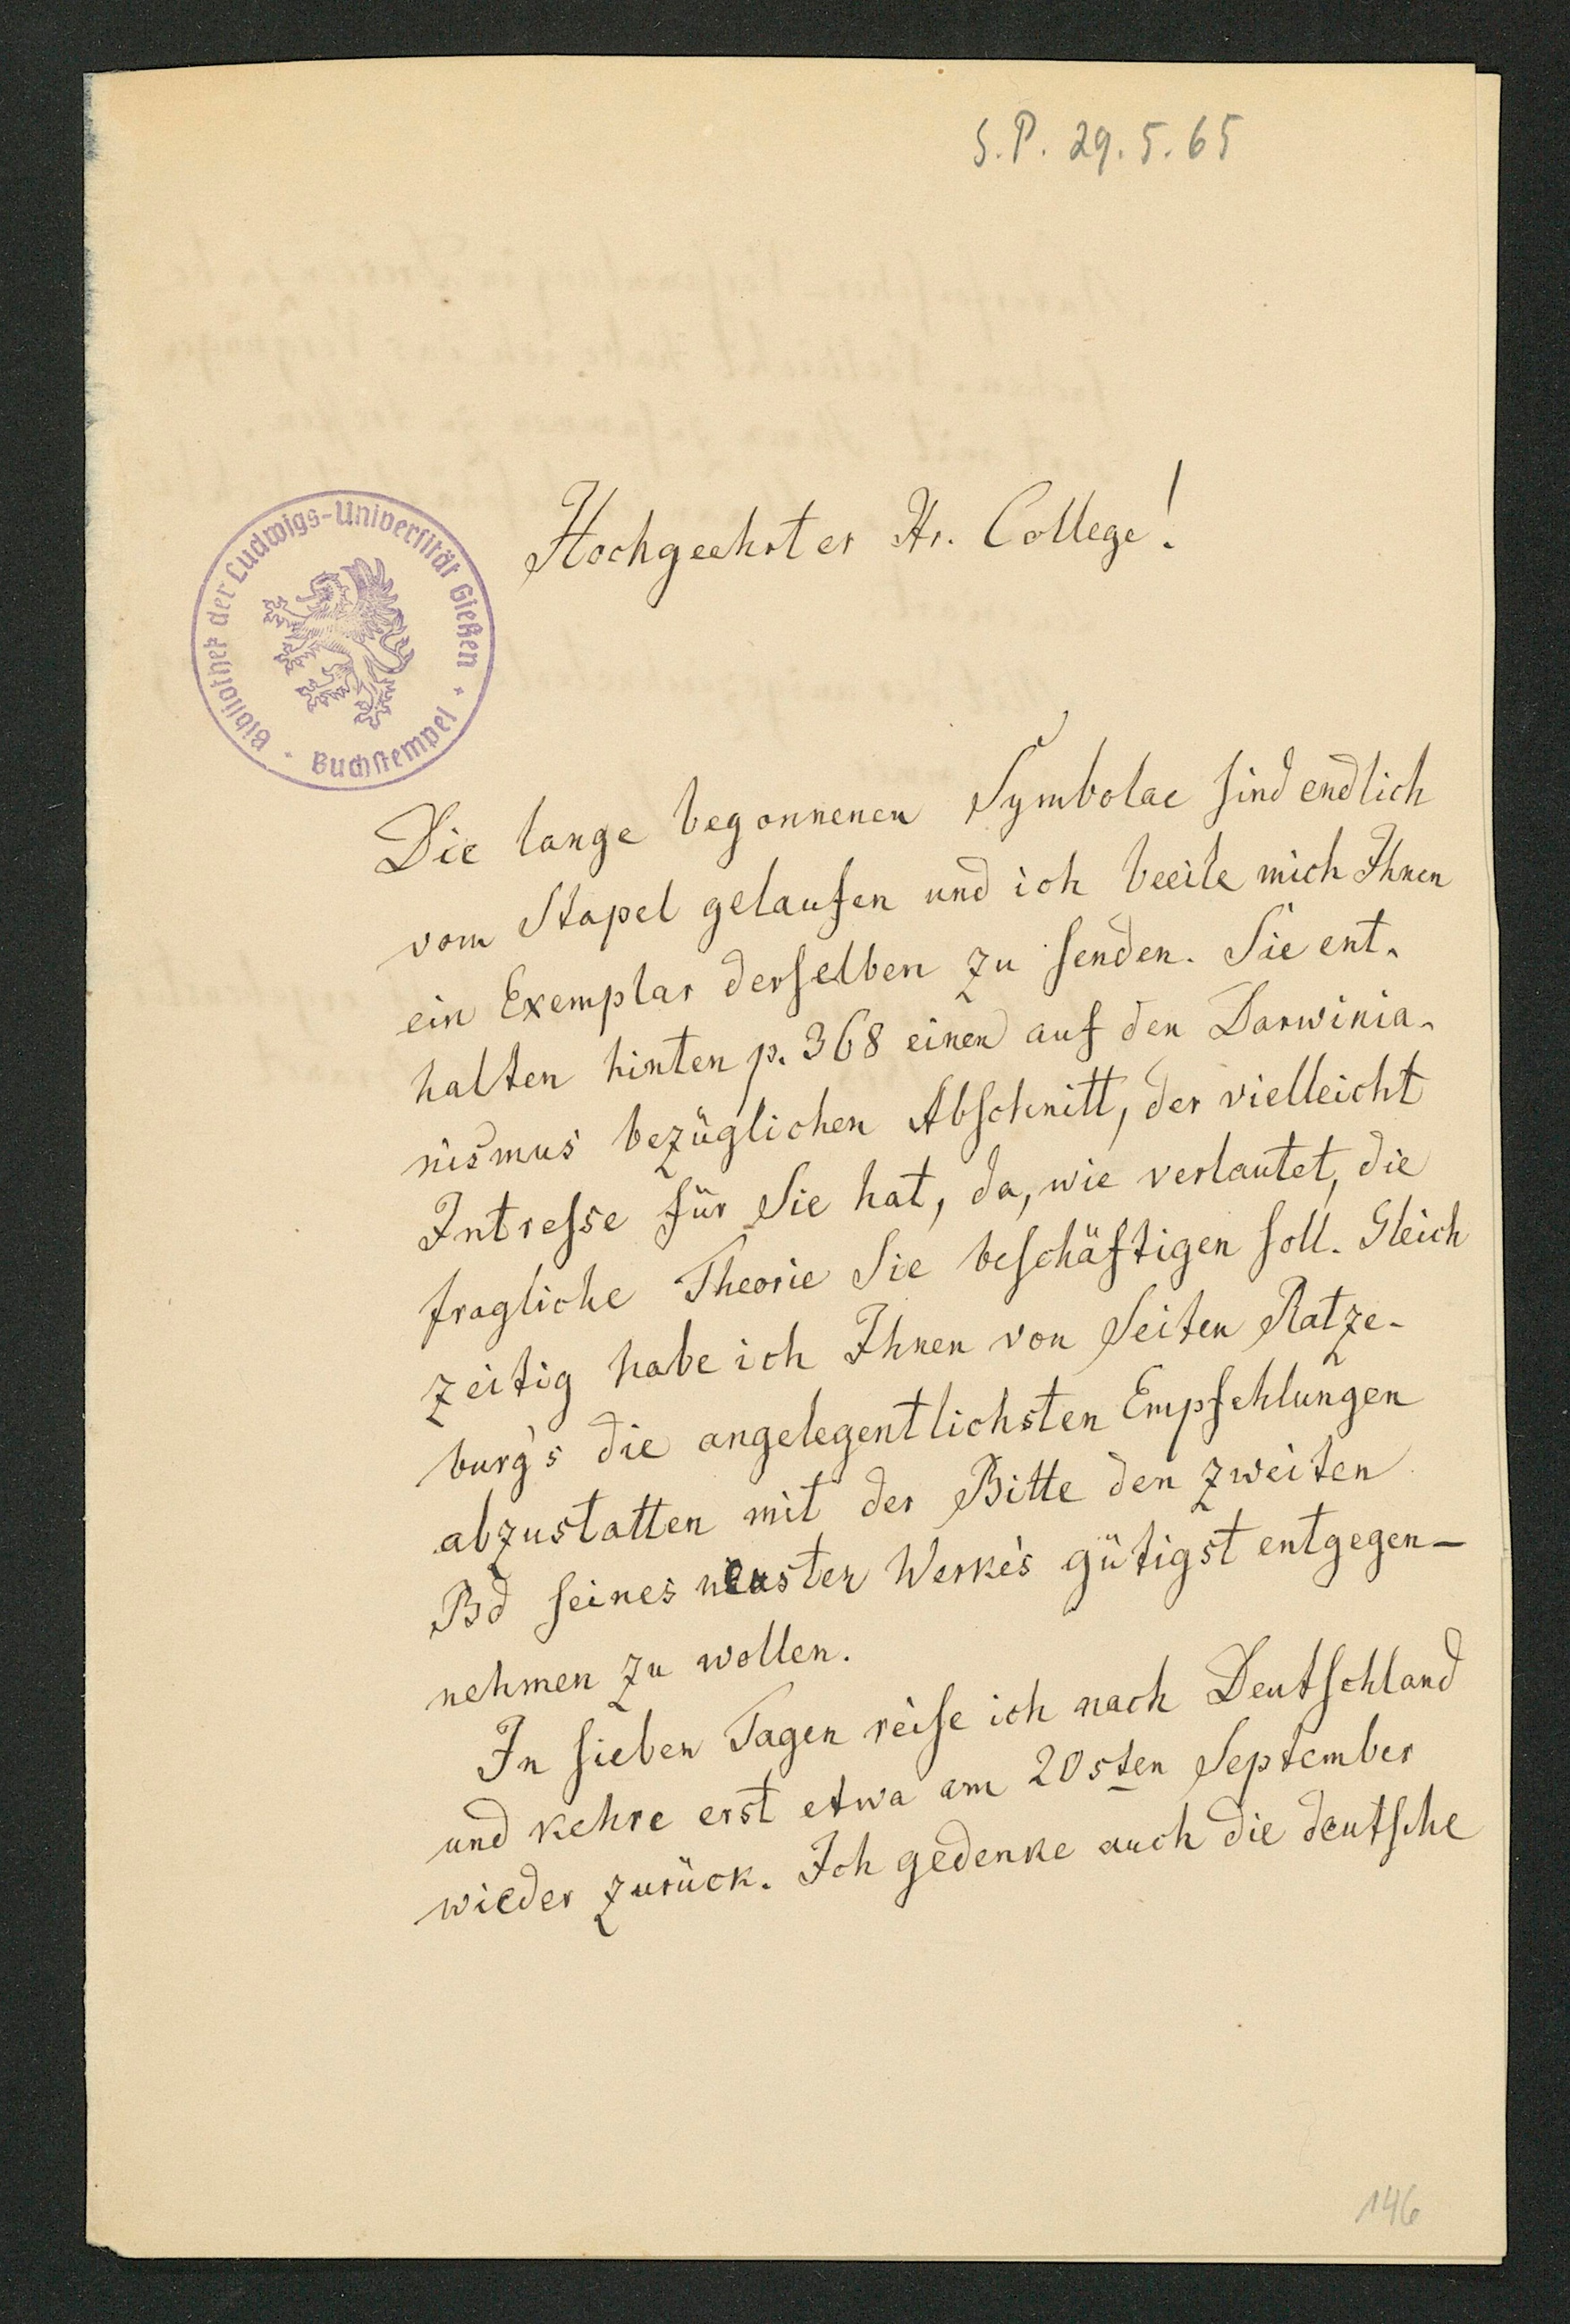 S.P. 29.5.65
Hochgeehrter Hr. College!
Bibliothek der Ludwigs-Universität Gießen
Buchstempel
Die lange begonnenen Symbolae sind endlich
vom Stapel gelaufen und ich beeile mich Ihnen
ein Exemplar derselben zu senden. Sie ent-
halten hinten p. 368 einen auf den Darwinia-
nismus bezüglichen Abschnitt, der vielleicht
Intresse für Sie hat, da, wie verlautet, die
fragliche Theorie Sie beschäftigen soll. Gleich
zeitig habe ich Ihnen von Seiten Ratze-
burg's die angelegentlichsten Empfehlungen
abzustatten mit der Bitte den zweiten
Bd seines neusten Werke's gütigst entgegen-
nehmen zu wollen.
In sieben Tagen reise ich nach Deutschland
und kehre erst etwa am 20sten September
wieder zurück. Ich gedenke auch die deutsche
146